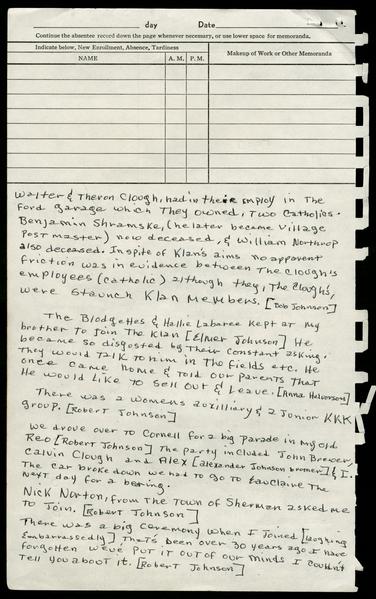 day Date
Continue the absentee record down the page whenever necessary, or use lower space for memoranda.
Indicate below, New Enrollment, Absence, Tardiness
Makeup of Work or Other Memoranda
NAME A. M. P. M.
Walter & Theron Clough, had in their employ in The
Ford garage which They owned, Two Catholics.
Benjamin Shramske, (he later became Village
Post master) now deceased, & William Northrop
also deceased. In spite of Klan's aims no apparent
friction was in evidence between The Clough's
employees (Catholic) although they, The Cloughs,
were staunch Klan members. [Bob Johnson]
The Blodgettes & Hallie Labaree kept at my
brother to Join The Klan [Elmer Johnson] He
became so disgusted by Their constant asking.
They would Talk to him in The fields etc. He
once came home & told our parents That
He would like to sell out & Leave. [Anna Halverson]
There was a womens auxilliary & a Junior KKK
group. [Robert Johnson]
We drove over to Cornell for a big parade in my old
Reo [Robert Johnson] The party included John Brewer,
Calvin Clough and Alex [Alexander Johnson] & I.
The car broke down we had to go to Eau Claire The
next day for a bering.
Nick Norton, from the Town of Sherman asked me
to Join. [Robert Johnson]
There was a big ceremony when I Joined [Laughing
Embarrassedly] That's been over 30 years ago I have
forgotten we've put it out of our minds I couldn't
Tell you about it. [Robert Johnson]